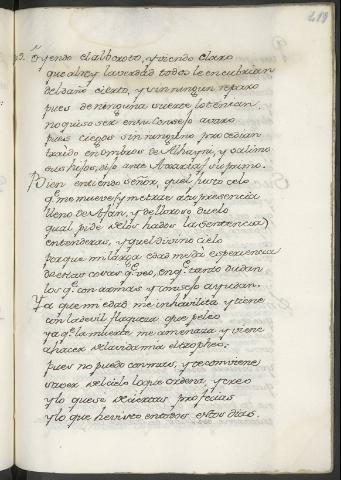 219
Oyendo el alboroto, y viendo claro
que al rey la verdad todos le encubrian
del daño cierto, y sin ningun reparo
pues de ninguna suerte lo tenian
no quiso ser en su Consejo avaro
pues ciegos sin ninguno procedian
traido en ombros de
sus hijos, dijo ante
Bien entiendo señor, quel justo celo
q.e me mueve y me trae a tu presencia
lleno de Afan, y de lloroso duelo
qual pide de los hados la sentencia
entenderas, y quel divino cielo
porque mi larga edad me dá esperiencia
de estas cosas q.e veo, en q.e tanto dudan
los q.e con armas y consejo ayudan.
Ya que mi edad me inhavilita y tiene
con la devil flaqueza que peleo
ya q.e la muerte me amenaza y viene
a hacer de la vida mia el tropheo:
pues no puedo con mas, y te conviene
saver del cielo lo que ordena, y creo
y lo que se de ciertas profecias
y lo que he visto en todos estos dias.